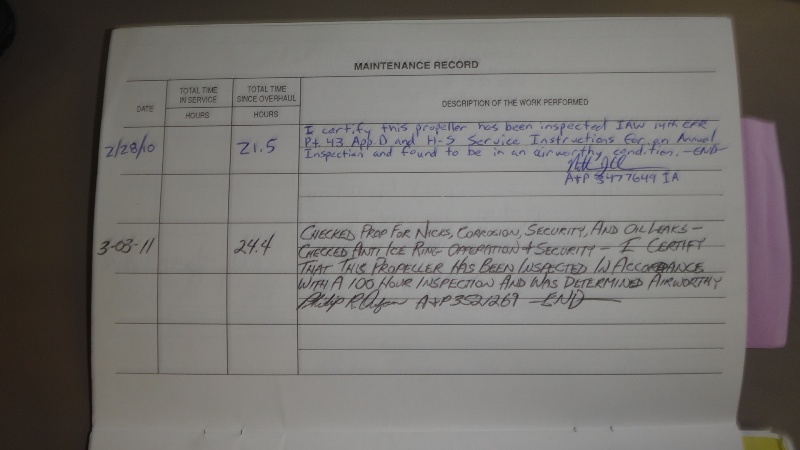 MAINTENANCE RECORD
DATE
TOTAL TIME
IN SERVICE
HOURS
TOTAL TIME
SINCE OVERHAUL
HOURS
DESCRIPTION OF THE WORK PERFORMED
2/28/10
21.5
I certify this propeller has been inspected IAW 14th CFR
Pt. 43 App. D and H-S Service Instructions for an Annual
Inspection and found to be in an airworthy condition. -END-
A+P 3477649 IA
3-03-11
24.4
CHECKED PROP FOR NICKS, CORROSION, SECURITY, AND OIL LEAKS -
CHECKED ANTI ICE RING OPPERATION + SECURITY - I CERTIFY
THAT THIS PROPELLER HAS BEEN INSPECTED IN ACCORDANCE
WITH A 100 HOUR INSPECTION AND WAS DETERMINED AIRWORTHY
Philip R. A+P 3521269 -END-